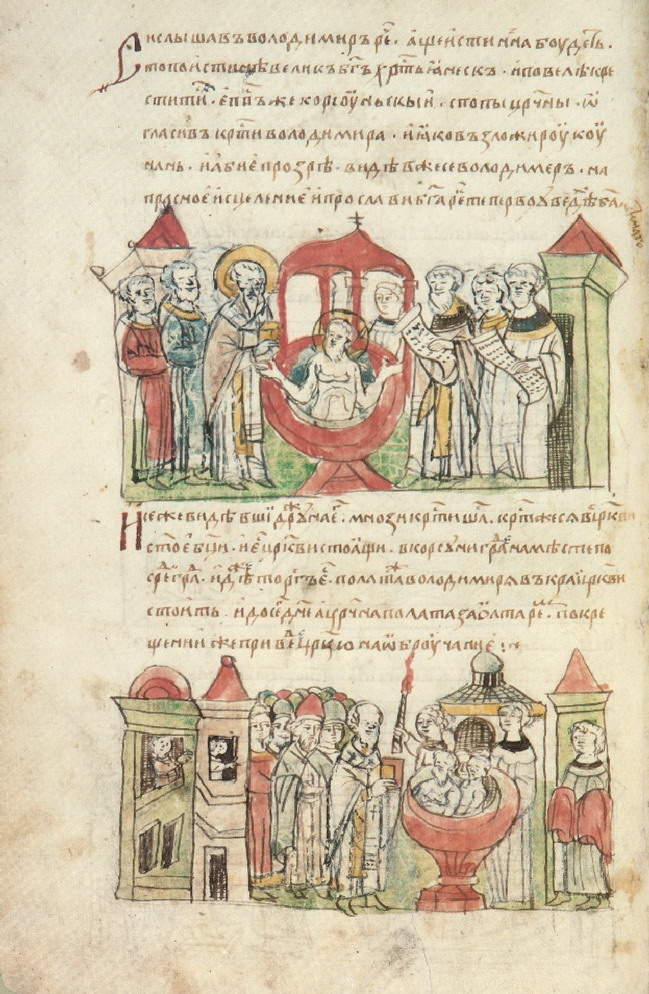 Сислышавъ володимиръ рⷱ҇е · аще истинна боудеть ·
то поистинѣ великъ бг҃ъ хрⷭ҇тьꙗнескъ · и повелѣ кре
ститиⷭ҇ · еп҃пъ же корсоуньскыи · с попы цр҃чны · ѡ
гласивъ кр҃ти володимира · и ꙗко възложи роукоу
на нь · и абие прозрѣ · видѣв же се володимеръ · на
прасное исцеление и прослави б҃га реⷱ҇ топерво оувѣдѣ б҃а
И се же видѣвши дрⷤ҇уна еⷢ҇ · мнози кр҃тишаⷭ҇ · кр҃ти же ся въ ц҃ркви
ст҃ое б҃ци · и еⷭ҇ ц҃ркви стоꙗщи · в корсуни граⷣ на мѣсте по
среⷣ граⷣ · идѣⷤ торгъ деⷮ҇ · полатаⷤ володимиря въ краи ц҃ркви
стоить · и до сеⷢ҇ дн҃е а цр҃чна палата за олтареⷨ · по кре
щении же привеⷣ цр҃цю на ѡброучание :~